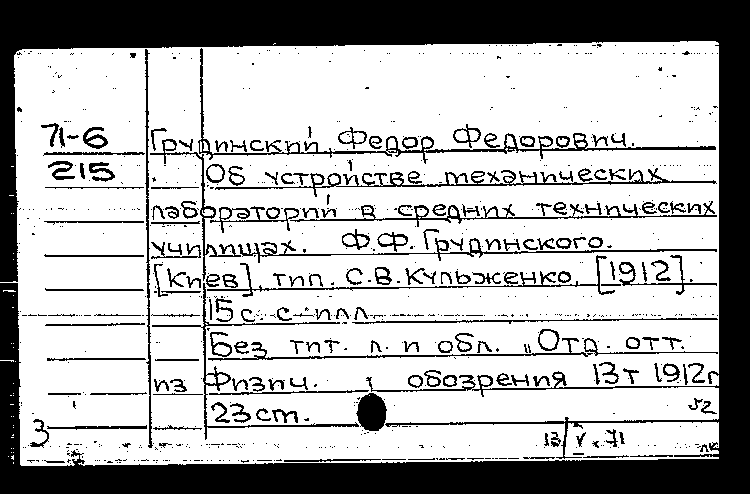 71-6 Грудинский, Федор Федорович.
215 Об устройстве механических
лабораторий в средних технических
училищах. Ф.Ф. Грудинского.
[Киев], тип. С.В. Кульженко, [1912].
15 с. с илл.
Без тит. л. и обл. „Отд. отт.
из Физич. обозрения 13 т 1912 г
23 ст. 52
3 13/V.71